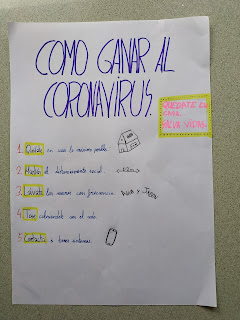 COMO GANAR AL
CORONAVIRUS.
QUEDATE EN
CASA.
SALVA VIDAS.
1. Quédate en casa lo máximo posible.
2. Mantén el distanciamiento social.
3. Lávate las manos con frecuencia. AGUA Y JABÓN
4. Tose cubriendote con el codo.
5. Contacta si tienes síntomas.